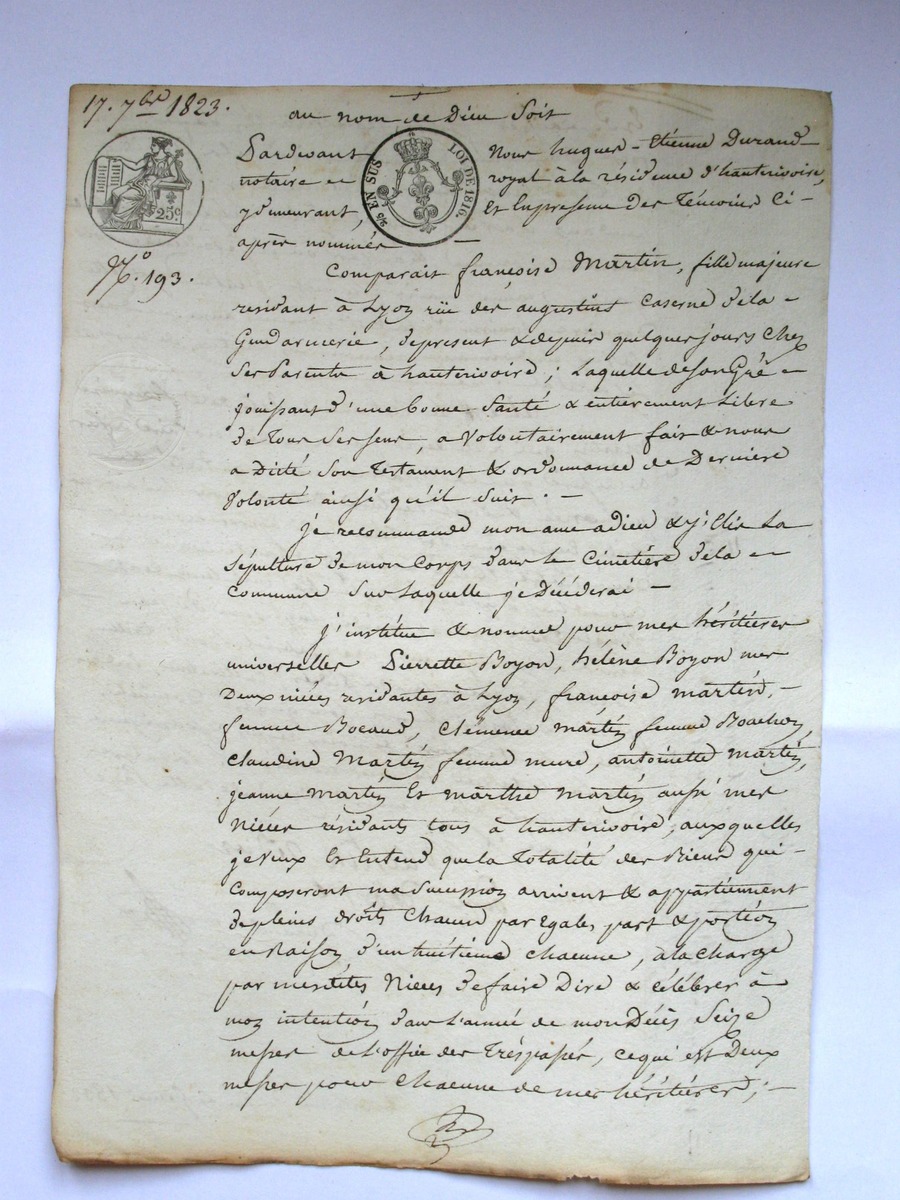 17. 7bre 1823.
au nom de Dieu Soit
Pardevant Nous hugues-Etienne Durand
notaire royal à la résidence d'hauterivoire,
y demeurant, Et En presence des Témoins Ci-
après nommés —
25c
2/5 EN SUS LOI DE 1816.
No. 193.
Comparait françoise Martin, fille majeure
residant à Lyon rüe des augustins Caserne dela
Gendarmerie, depresent & depuis quelques jours chez
Ses Parents à hauterivoire; Laquelle de Son Gré
jouissant d'une bonne Santé & entièrement Libre
de Tous Ses Sens, a Volontairement fait & nous
a Dicté Son Testament & ordonnance de Derniere
Volonté ainsi qu'il Suit. —
je recommande mon ame adieu & j'Elis La
Sépulture de mon Corps dans le Cimetière dela
Commune Sur Laquelle je Décéderai —
j'institue & nomme pour mes héritières
universelles Pierrette Boyon, hélène Boyon mes
Deux nièces residantes à Lyon, françoise martin,
femme Bocaud, Clémence martin femme Boachon,
Claudine Martin femme mure, antoinette martin,
jeanne martin Et marthe martin aussi mes
Nièces résidants tous à hauterivoire, auxquelles
je Veux Et Entend que la Totalité des Biens qui
Composeront ma Succession arrivent & appartiennent
de pleins droits Chacune par Egales part & portion
en Raison d'un huitième chacune, à la Charge
par mesdites Nieces de faire Dire & Célébrer à
mon intention dans L'année de mon Décès Seize
messes de L'office des Tréspassés, ce qui est Deux
messes pour Chacune de mes héritières; —